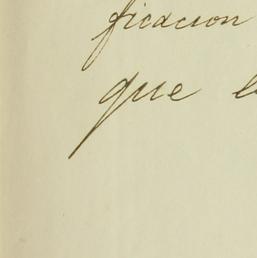 ficacion
que